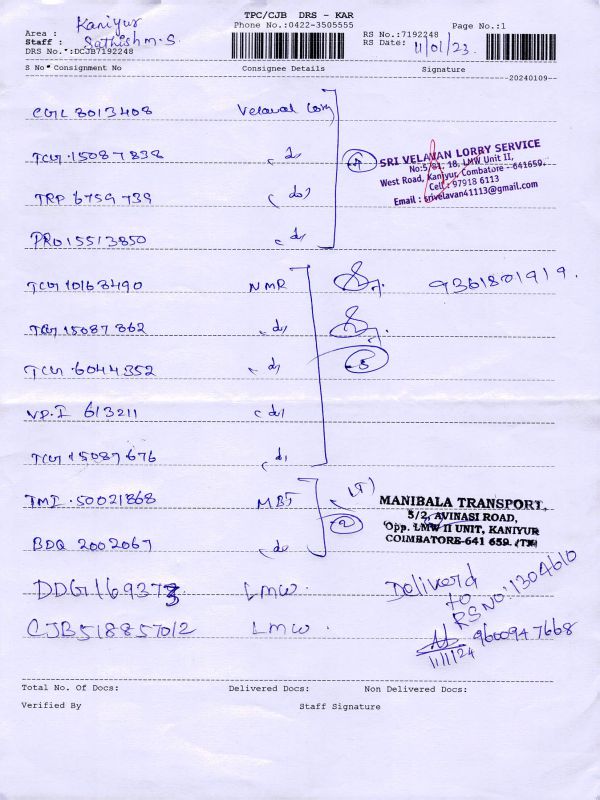 TPC/CJB DRS - KAR
Area : Kaniyur Phone No.:0422-3505555 Page No.:1
Staff : Sathish M.S. RS No.:7192248
DRS No.*:DCJB7192248 RS Date: 11/01/23.
S No* Consignment No Consignee Details Signature
20240109
CGL 8013408 Velaval Lorry
TCG 15087838 do
TRP 6759739 do
PRO15513850 do
4
SRI VELAVAN LORRY SERVICE
No:5/81, 18, LMW Unit II,
West Road, Kaniyur, Combatore - 641659.
Cell : 97918 6113
Email : srivelavan41113@gmail.com
TCG 10163490 NMR 9361801919.
TCG 15087862 do
TCG 6044352 do 5
VPI 613211 do
TCG 15087676 do
TMI 50021868 MBT (T)
BDQ 2002067 do 2
MANIBALA TRANSPORT,
5/2, AVINASI ROAD,
Opp. LMW II UNIT, KANIYUR
COIMBATORE-641 659. (TN)
DDG169373 LMW.
CJB518857012 LMW.
Deliverd
to
RS NO: 1304610
9600947668
11/1/24
Total No. Of Docs: Delivered Docs: Non Delivered Docs:
Verified By Staff Signature